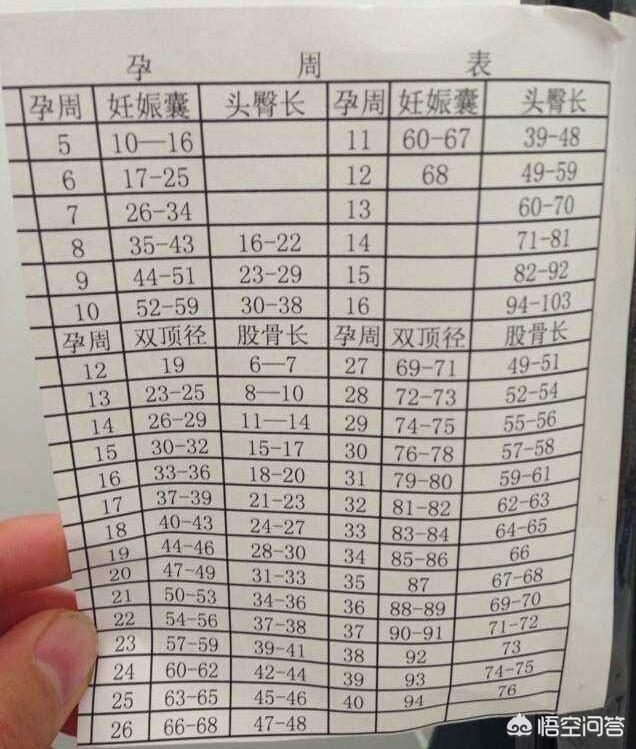 孕 周 表
孕周 妊娠囊 头臀长 孕周 妊娠囊 头臀长
5 10—16 11 60-67 39-48
6 17-25 12 68 49-59
7 26-34 13 60-70
8 35-43 16-22 14 71-81
9 44-51 23-29 15 82-92
10 52-59 30-38 16 94-103
孕周 双顶径 股骨长 孕周 双顶径 股骨长
12 19 6—7 27 69-71 49-51
13 23-25 8—10 28 72-73 52-54
14 26-29 11—14 29 74-75 55-56
15 30-32 15-17 30 76-78 57-58
16 33-36 18-20 31 79-80 59-61
17 37-39 21-23 32 81-82 62-63
18 40-43 24-27 33 83-84 64-65
19 44-46 28-30 34 85-86 66
20 47-49 31-33 35 87 67-68
21 50-53 34-36 36 88-89 69-70
22 54-56 37-38 37 90-91 71-72
23 57-59 39-41 38 92 73
24 60-62 42-44 39 93 74-75
25 63-65 45-46 40 94 76
26 66-68 47-48
悟空问答